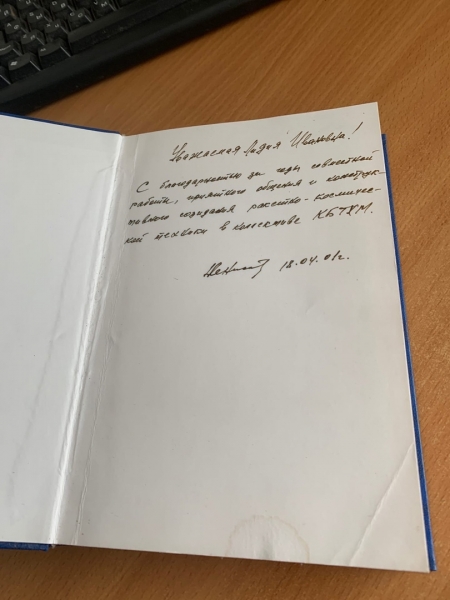 Уважаемая Лидия Ивановна!
С благодарностью за годы совместной
работы, приятного общения и конструк-
тивного созидания ракетно-космичес-
кой техники в коллективе КБТХМ.
18.04.01г.